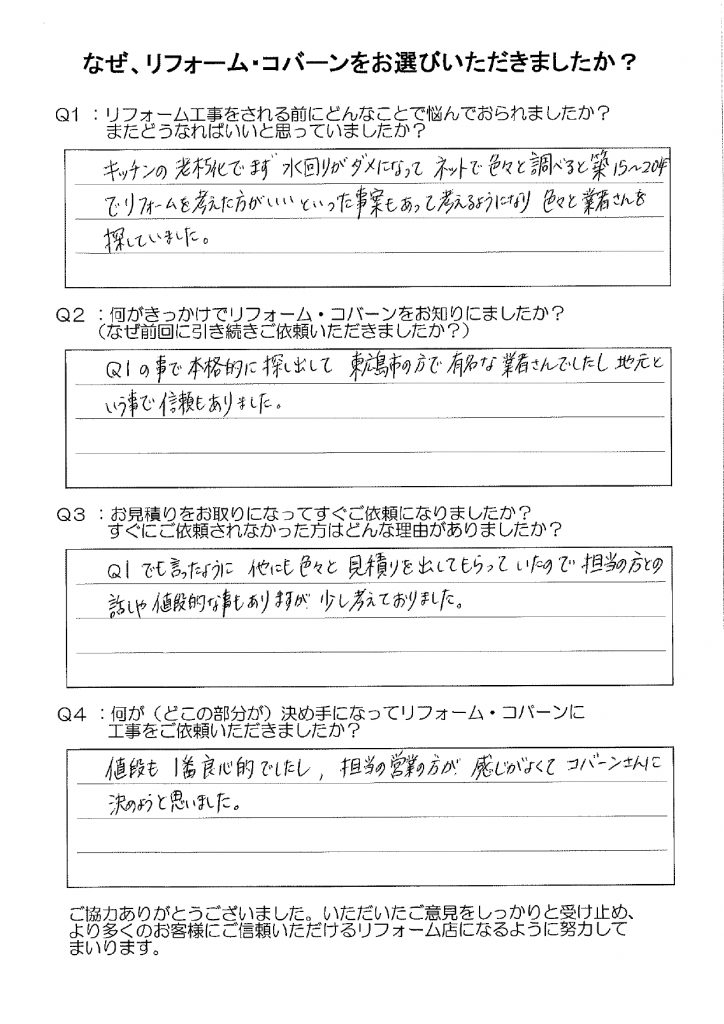 なぜ、リフォーム・コバーンをお選びいただきましたか？
Q1 ：リフォーム工事をされる前にどんなことで悩んでおられましたか？
またどうなればいいと思っていましたか？
キッチンの老朽化でまず水回りがダメになって ネットで色々と調べると築15〜20年
でリフォームを考えた方がいいといった事案もあって考えるようになり 色々と業者さんを
探していました。
Q2 ：何がきっかけでリフォーム・コバーンをお知りにましたか？
（なぜ前回に引き続きご依頼いただきましたか？）
Q1の事で本格的に探し出して 東広島市の方で有名な業者さんでしたし 地元と
いう事で信頼もありました。
Q3 ：お見積りをお取りになってすぐご依頼になりましたか？
すぐにご依頼されなかった方はどんな理由がありましたか？
Q1でも言ったように 他にも色々と見積りを出してもらっていたので担当の方との
話しや値段的な事もありますが 少し考えておりました。
Q4 ：何が（どこの部分が）決め手になってリフォーム・コバーンに
工事をご依頼いただきましたか？
値段も1番良心的でしたし、担当の営業の方が 感じがよくてコバーンさんに
決めようと思いました。
ご協力ありがとうございました。いただいたご意見をしっかりと受け止め、
より多くのお客様にご信頼いただけるリフォーム店になるように努力して
まいります。